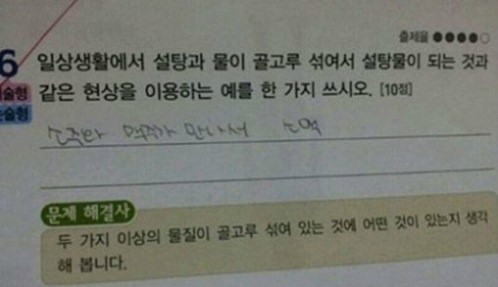 출제율 ●●●●○
6 일상생활에서 설탕과 물이 골고루 섞여서 설탕물이 되는 것과
술형 같은 현상을 이용하는 예를 한 가지 쓰시오. [10점]
술형
소주와 맥주가 만나서 소맥
문제 해결사
두 가지 이상의 물질이 골고루 섞여 있는 것에 어떤 것이 있는지 생각
해 봅니다.